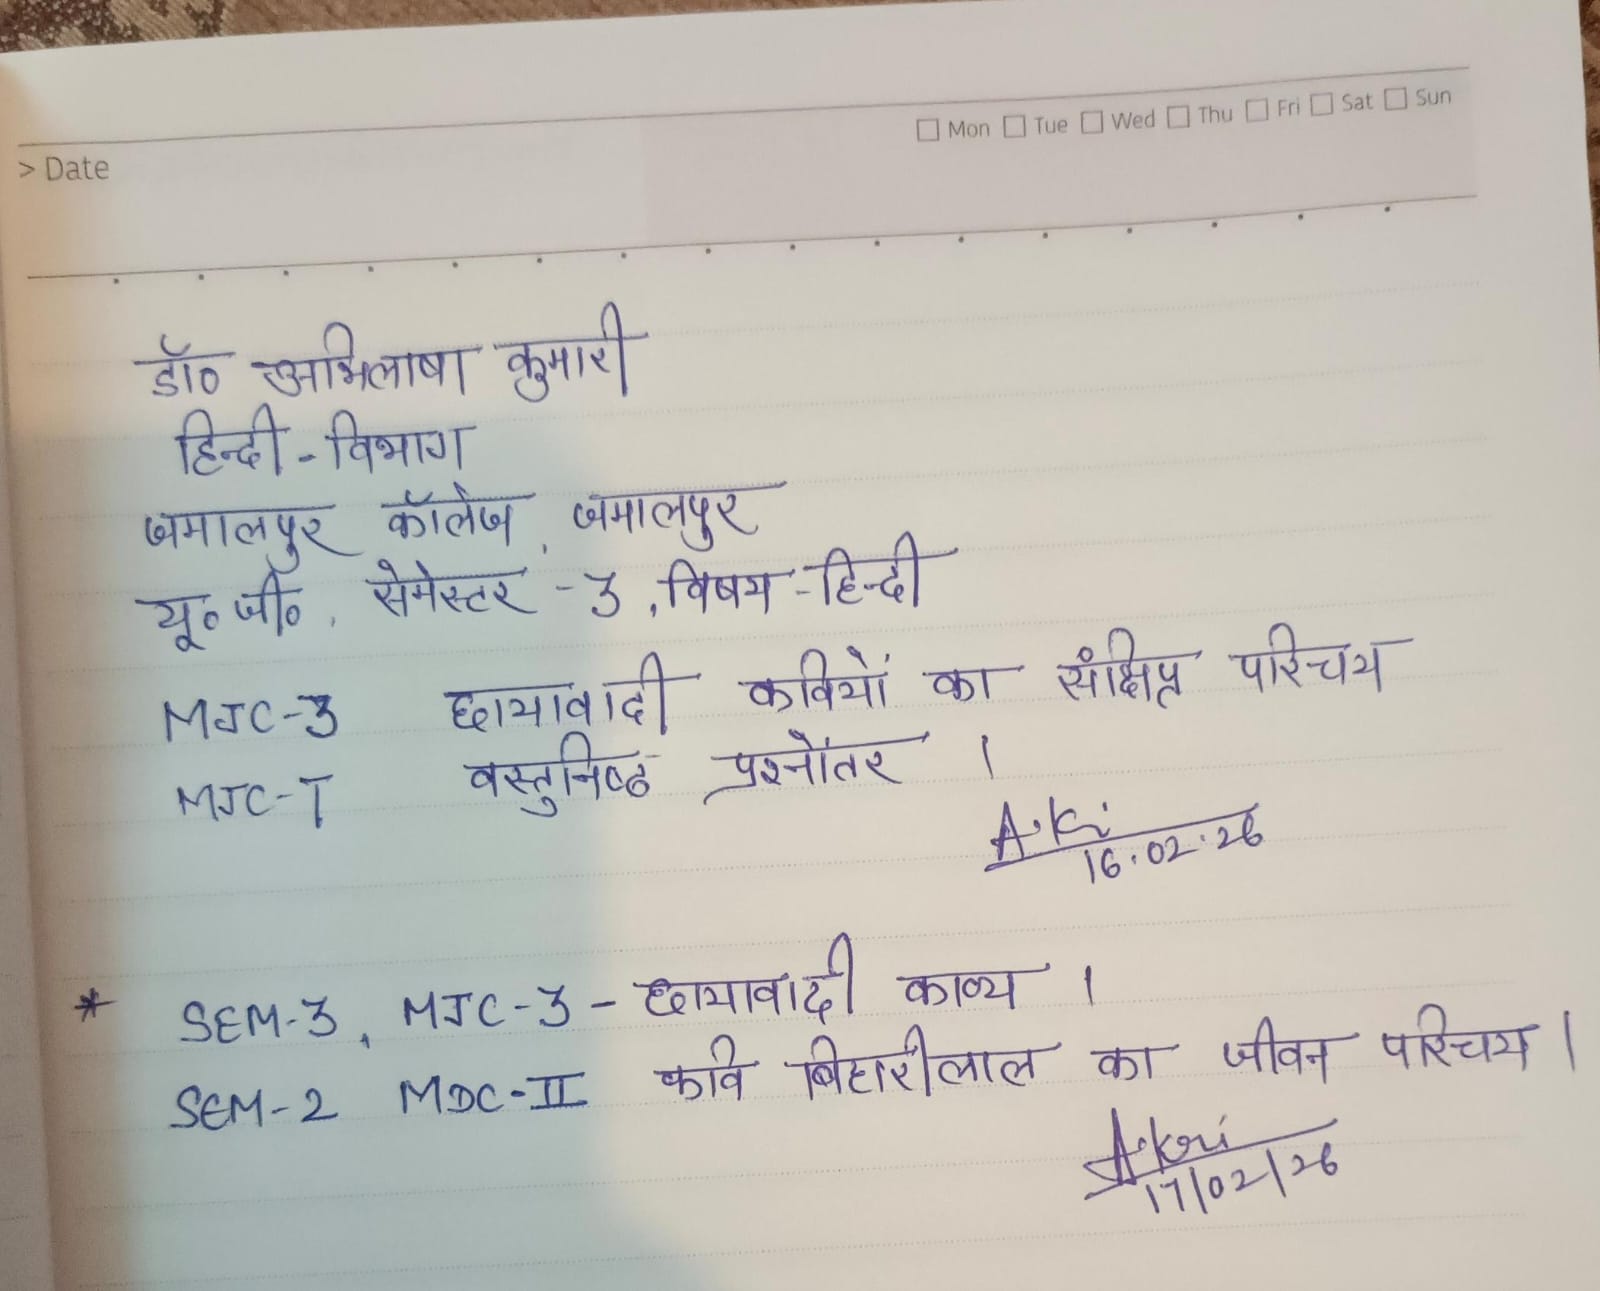 Mon Tue Wed Thu Fri Sat Sun
> Date
डॉ० अभिलाषा कुमारी
हिन्दी - विभाग
जमालपुर कॉलेज, जमालपुर
यू० जी०, सेमेस्टर - 3, विषय - हिन्दी
MJC-3 छायावादी कवियों का संक्षिप्त परिचय
MJC-T वस्तुनिष्ठ प्रश्नोंतर ।
A.Ki
16.02.26
* SEM-3, MJC-3 - छायावादी काव्य ।
SEM-2 MDC-II कवि बिहारीलाल का जीवन परिचय ।
A.Kri
17/02/26